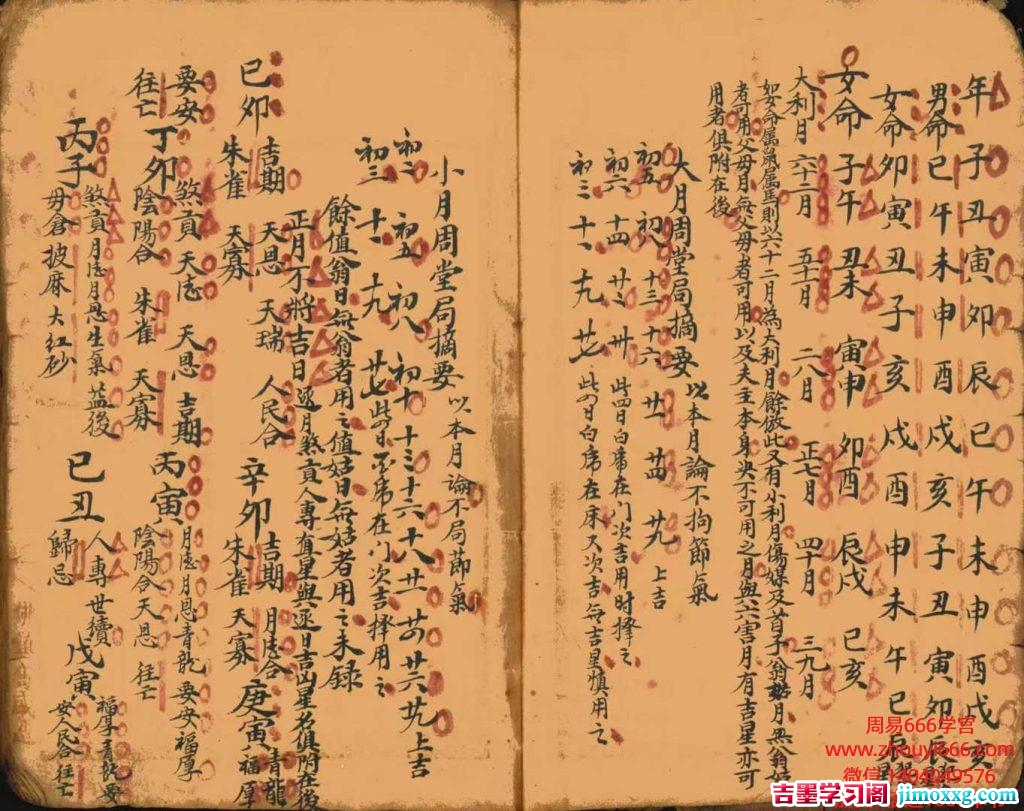 年 子丑寅卯辰巳午未申酉戌亥
男命 巳午未申酉戌亥子丑寅卯辰
女命 卯寅丑子亥戌酉申未午巳辰
女命 子午 丑未 寅申 卯酉 辰戌 巳亥
大利月 六十二月 五十一月 二八月 正七月 四十月 三九月
如女命属鼠属馬則以六十二月為大利月餘倣此又有小利月傷媒及首子翁姑月無翁姑
者可用父母月無父母者可用以及夫主本身决不可用之月與六害月有吉星亦可
用者俱附在後
大月周堂局摘要 以本月論不拘節氣
初五 初八 十三 十六 廿一 廿四 廿九 上吉
初六 十四 廿二 卅 此四日白席在门次吉用时擇之
初三 十一 十九 廿七 此四日白席在床又次吉無吉星慎用之
小月周堂局摘要 以本月論不局節氣
初二 初五 初八 初十 十三 十六 十八 廿一 廿四 廿六 廿九 上吉
初三 十一 十九 廿七 此四日白席在门次吉擇用之
餘值翁日無翁者用之值姑日無姑者用之未録
正月丁將吉日逐月煞貢人專直星與逐日吉凶星名俱附在後
己卯 吉期 天恩 天瑞 人民合
朱雀 天寡
辛卯 吉期 月德合
朱雀 天寡
庚寅 青龍
福厚
要安
往亡
丁卯 煞貢 天德 天恩 吉期
陰陽合 朱雀 天寡
丙寅 月德月恩青龍要安福厚
陰陽合天恩 往亡
丙子 煞貢月德月恩生氣益後
母倉披麻大红砂
己丑 人專世續
歸忌
戊寅 福厚青龍要
安人民合往亡
周易666学宫
www.zhouyi666.com
微信1404049576
吉墨学习阁 jimoxxg.com